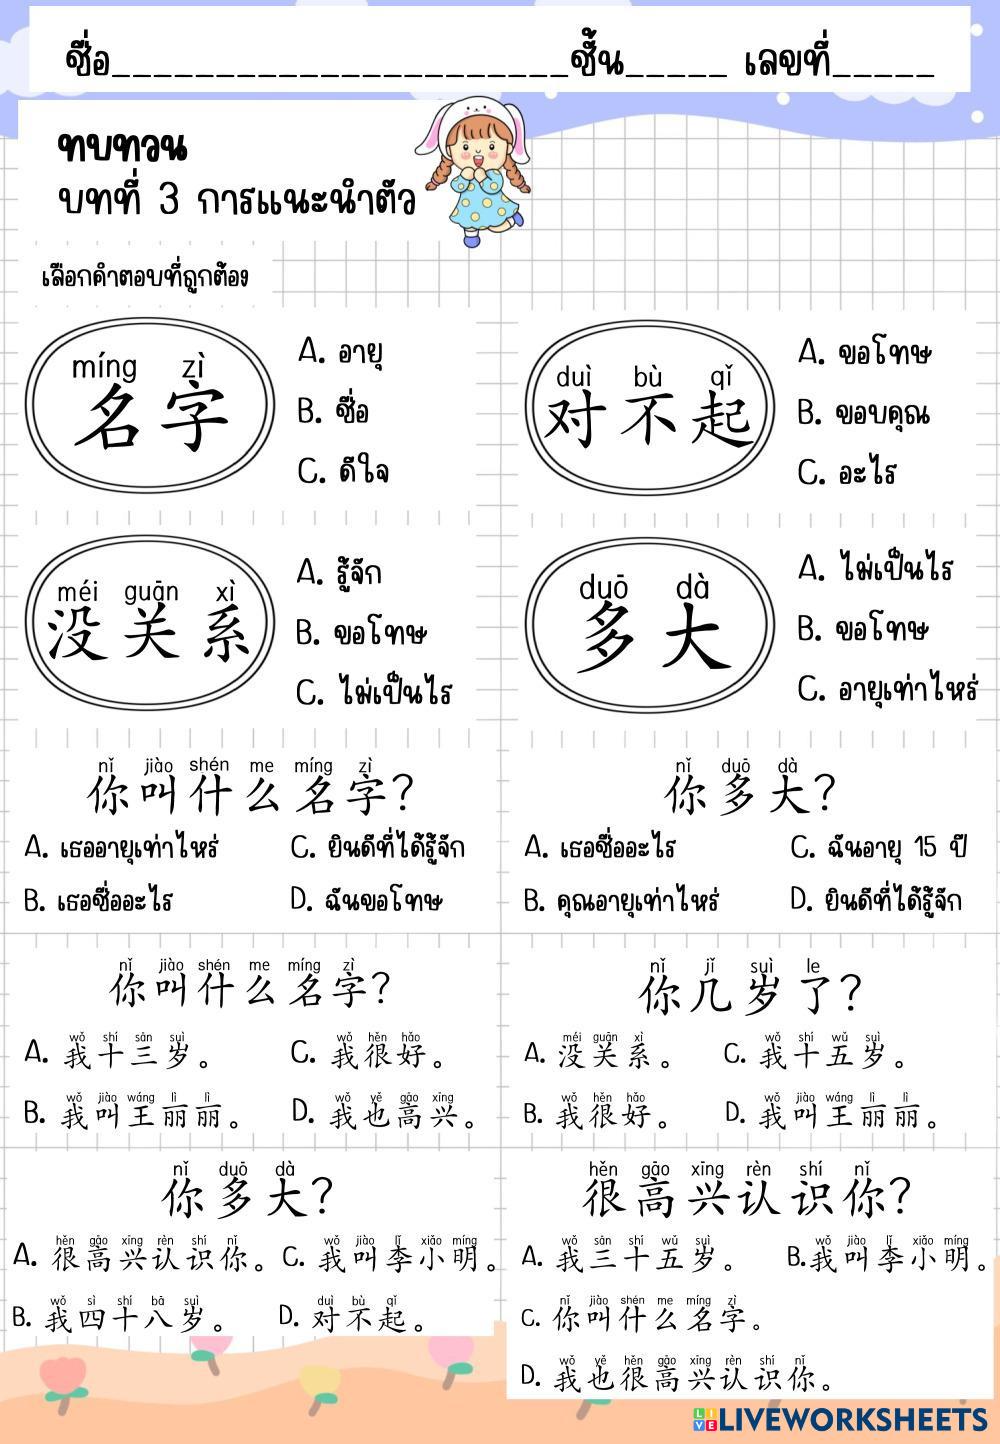 ชื่อ______________________ชั้น_____ เลขที่_____
ทบทวน
บทที่ 3 การแนะนำตัว
เลือกคำตอบที่ถูกต้อง
míng zì
名字
A. อายุ
B. ชื่อ
C. ดีใจ
duì bù qǐ
对不起
A. ขอโทษ
B. ขอบคุณ
C. อะไร
méi guān xì
没关系
A. รู้จัก
B. ขอโทษ
C. ไม่เป็นไร
duō dà
多大
A. ไม่เป็นไร
B. ขอโทษ
C. อายุเท่าไหร่
nǐ jiào shén me míng zì
你叫什么名字?
A. เธออายุเท่าไหร่ C. ยินดีที่ได้รู้จัก
B. เธอชื่ออะไร D. ฉันขอโทษ
nǐ duō dà
你多大?
A. เธอชื่ออะไร C. ฉันอายุ 15 ปี
B. คุณอายุเท่าไหร่ D. ยินดีที่ได้รู้จัก
nǐ jiào shén me míng zì
你叫什么名字?
wǒ shí sān suì wǒ hěn hǎo
A. 我十三岁。 C. 我很好。
wǒ jiào wáng lì lì wǒ yě gāo xìng
B. 我叫王丽丽。 D. 我也高兴。
nǐ jǐ suì le
你几岁了?
méi guān xì wǒ shí wǔ suì
A. 没关系。 C. 我十五岁。
wǒ hěn hǎo wǒ jiào wáng lì lì
B. 我很好。 D. 我叫王丽丽。
nǐ duō dà
你多大?
hěn gāo xīng rèn shí nǐ wǒ jiào lǐ xiǎo míng
A. 很高兴认识你。 C. 我叫李小明。
wǒ sì shí bā suì duì bù qǐ
B. 我四十八岁。 D. 对不起。
hěn gāo xīng rèn shí nǐ
很高兴认识你?
wǒ sān shí wǔ suì wǒ jiào lǐ xiǎo míng
A. 我三十五岁。 B.我叫李小明。
nǐ jiào shén me míng zì
C. 你叫什么名字。
wǒ yě hěn gāo xīng rèn shí nǐ
D. 我也很高兴认识你。
LIVE LIVEWORKSHEETS